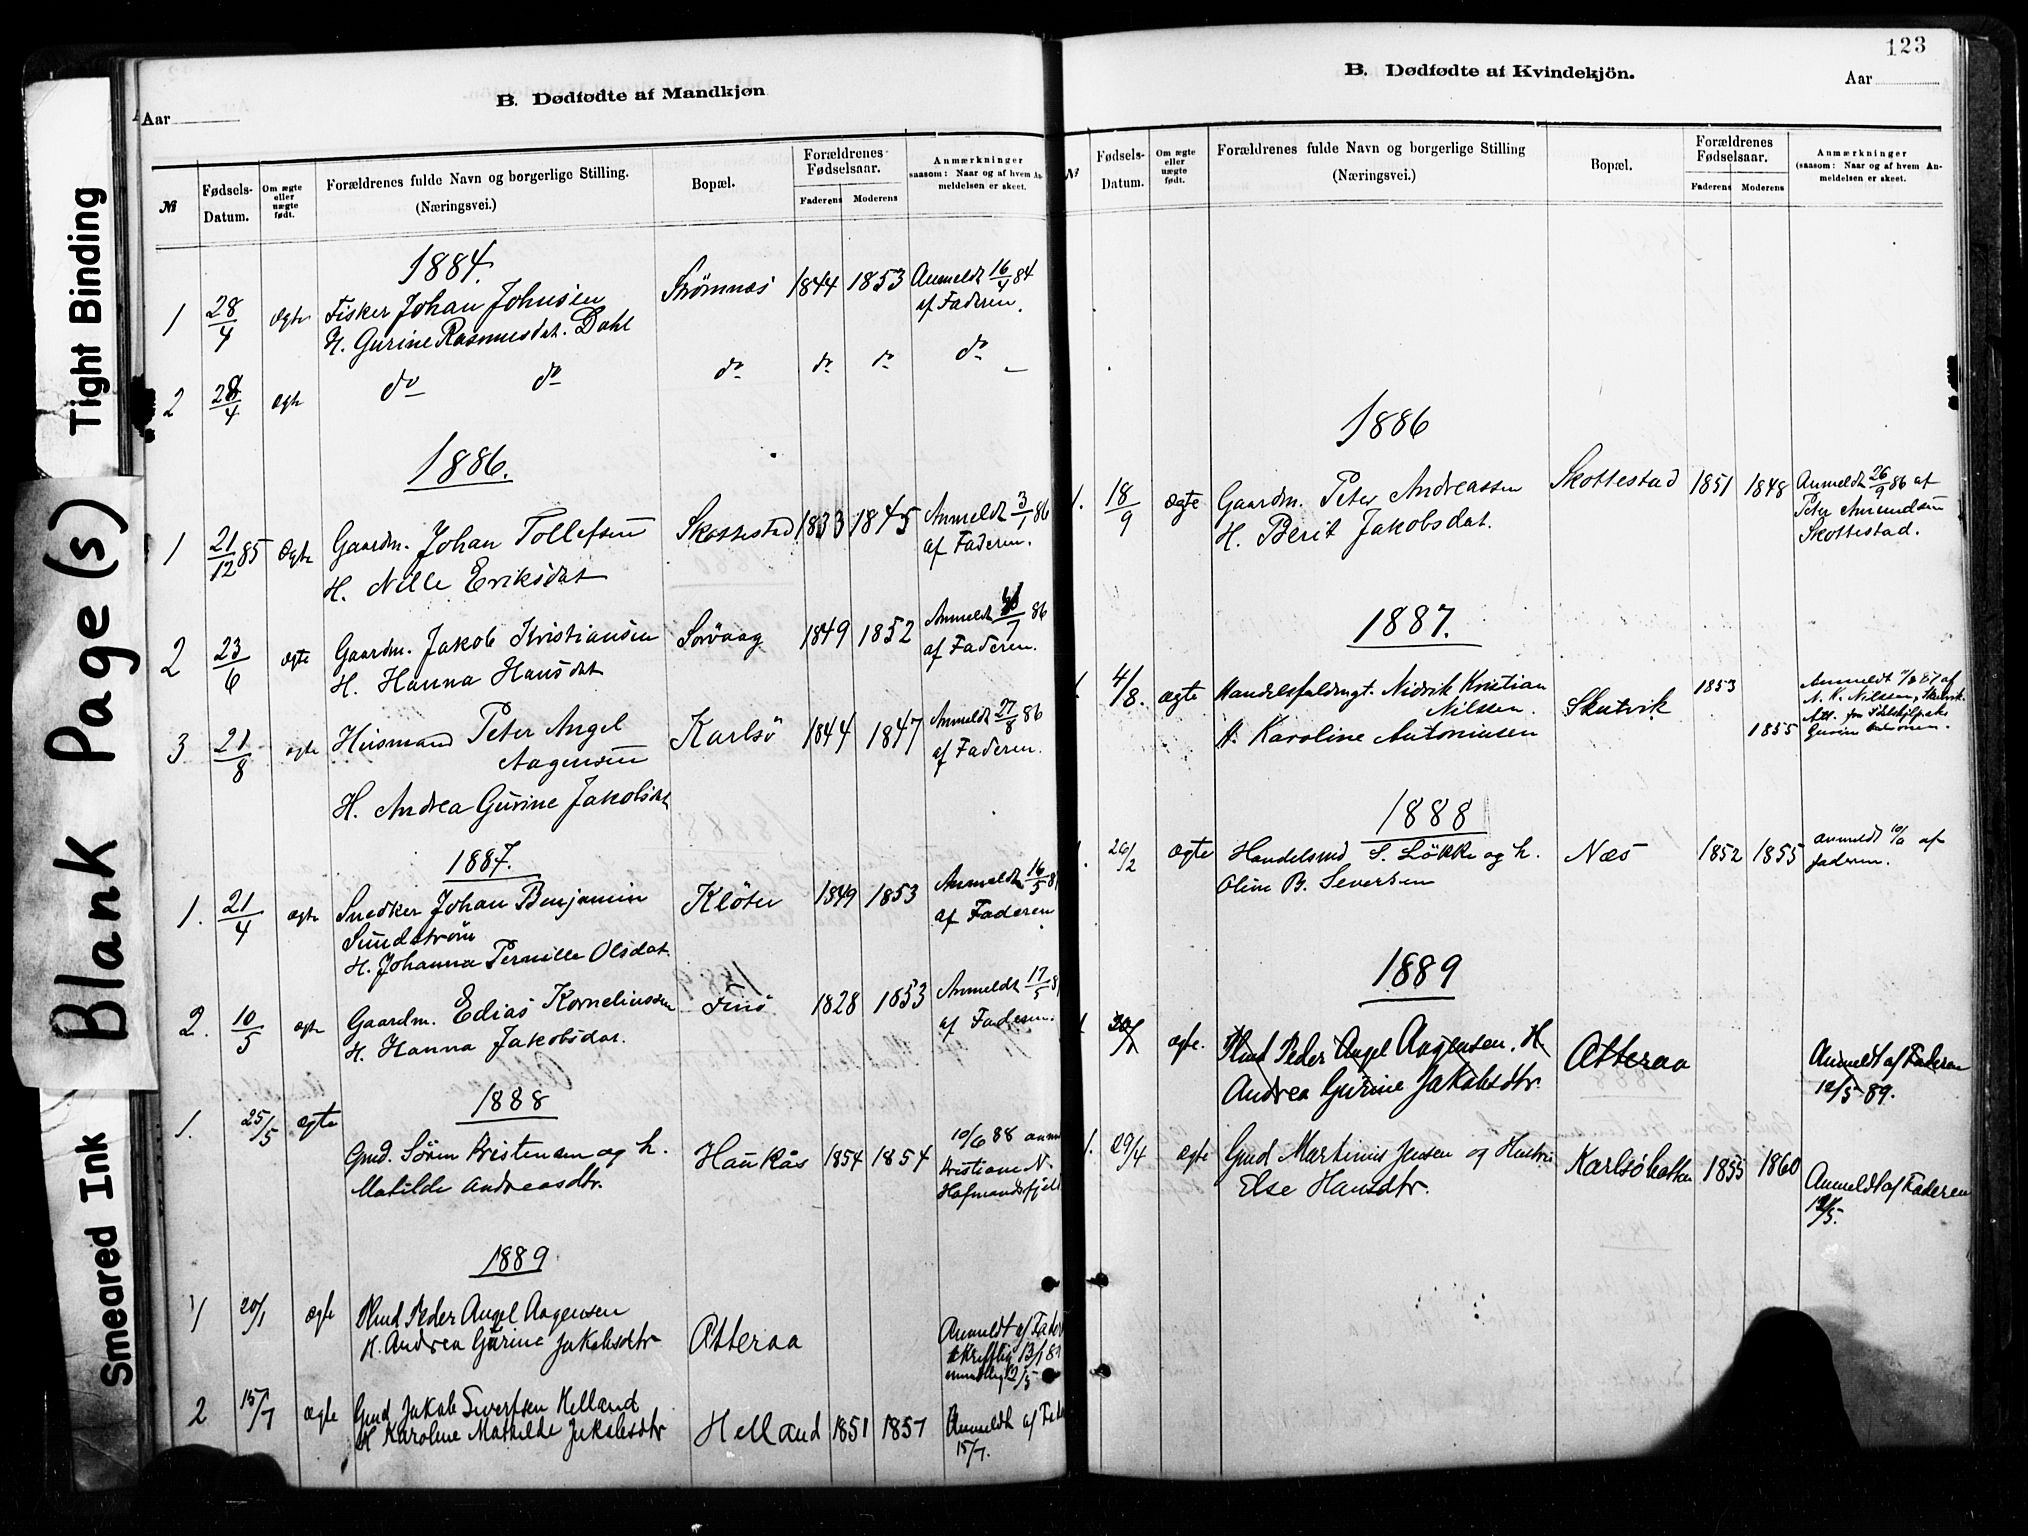 Tight Binding
Blank Page(s)
Smeared Ink
B. Dødfødte af Mandkjøn
Aar
№
Fødsels-
Datum.
Om ægte
eller
uægte
født.
Forældrenes fulde Navn og borgerlige Stilling.
(Næringsvei.)
Bopæl.
Forældrenes
Fødselsaar.
Faderens
Moderens
Anmærkninger
(saasom: Naar og af hvem An-
meldelsen er skeet.
1884.
1 28/4 ægte Fisker Johan Johnsen Strømnæs 1844 1853 Anmeldt 16/4 84
H. Gurine Rasmusdat. Dahl af Faderen.
2 28/4 ægte do do do do do do
1886.
1 21/12 85 Ægte Gaardm. Johan Tollefsen Skottestad 1833 1845 Anmeldt 3/1 86
H. Nille Eriksdat af Faderen.
2 23/6 ægte Gaardm. Jakob Kristiansen Sørvaag 1849 1852 Anmeldt /7 86
H. Hanna Hansdat af Faderen.
3 21/8 ægte Husmand Peter Angel Karlsö 1844 1847 Anmeldt 27/8 86
Aagensen af Faderen.
H. Andrea Gurine Jakobsdat
1887.
1. 21/4 ægte Snedker Johan Benjamin Kløten 1849 1853 Anmeldt 16/5 8
Sundstrøm af Faderen
H. Johanna Pernille Olsdat.
2. 10/5 ægte Gaardm. Edias Korneliussen Finö 1828 1853 Anmeldt 17/5 8
H. Hanna Jakobsdat. af Faderen.
1888
1. 25/5 ægte Gmd. Sören Kristensen og h. Haukås 1854 1854 10/6 88 anm
Matilde Andreasdtr. Kristiane N.
Hofmandsfjeld
1889
1 20/1 ægte Hmd Peder Angel Aagensen Atteraa Anmeldt af Fader
H. Andrea Gurine Jakobsdtr skriftlig 13/1 8
mundtlig 12/5
2 15/7 ægte Gmd Jakob Sivertsen Helland Helland 1851 1857 Anmeldt af Fade
H Karoline Mathilde Jakobsdtr 15/7.
123
B. Dødfødte af Kvindekjön.
Aar
№
Fødsels-
Datum.
Om ægte
eller
uægte
født.
Forældrenes fulde Navn og borgerlige Stilling
(Næringsvei.)
Bopæl.
Forældrenes
Fødselsaar.
Faderens
Moderens
Anmærkninger
(saasom: Naar og af hvem An-
meldelsen er skeet.
1886
1. 18/9 ægte Gaardm. Peter Andreassen Skottestad 1851 1848 Anmeldt 26/9 86 af
H. Berit Jakobsdat. Peter Amundsen
Skottestad.
1887.
4/8. ægte Handelsfuldmgt. Nidrik Kristian Skutvik 1853 Anmeldt af
Nilssen. N. K. Nilssen, Skutvik.
H. Karoline Antoniusen 1855 Att. fra
1888
1. 26/2 ægte Handelsmd S. Løkke og h. Næs 1852 1855 anmeldt af
Oline B. Seversen faderen.
1889
20/1 ægte. Hmd Peder Angel Aagensen. H. Atteraa Anmeldt af Faderen
Andrea Gurine Jakobsdtr. 12/5 89.
1. 29/4 ægte Gmd Martinus Jensen og Hustru Karlsöhatten 1855 1860 Anmeldt af Faderen
Else Hansdtr. 12/5.